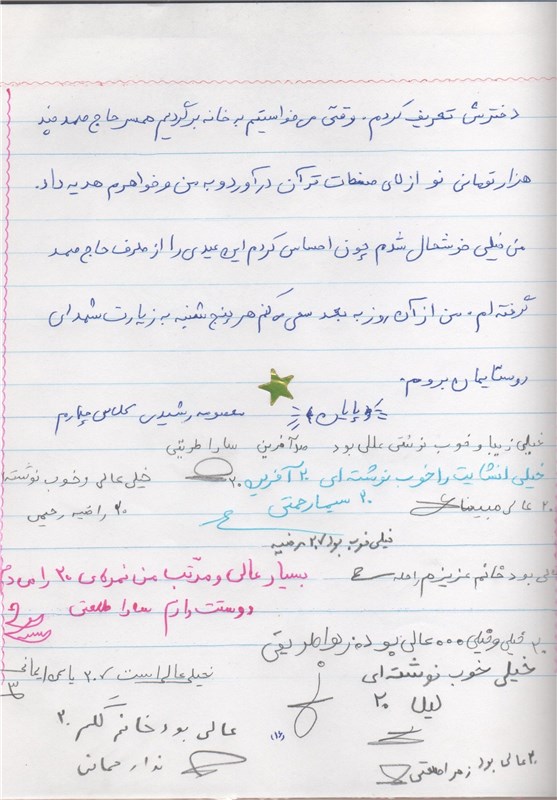 دخترش تعریف کردم. وقتی می‌خواستیم به خانه برگردیم همسر حاج محمد چند
هزار تومانی نو از لای صفحات قرآن در آورد و به من و خواهرم هدیه داد.
من خیلی خوشحال شدم چون احساس کردم این عیدی را از طرف حاج محمد
گرفته ام. من از آن روز به بعد سعی می کنم هر پنج شنبه به زیارت شهدای
روستایمان بروم.
پایان معصومه رشیدی کلاس چهارم
خیلی زیبا و خوب نوشتی عالی بود آفرین سارا
خیلی انشایت را خوب نوشته ای ۲۰ آفرین ۲۰
خیلی عالی و خوب نوشته
۲۰ عالی مبینا
۲۰ سیما رحمتی
۲۰ راضیه رحیمی
خیلی خوب بود ۲۰ مرضیه
عالی بود خانم عزیزم راحله
بسیار عالی و مرتب من نمره‌ی ۲۰ را می د
دوستت دارم سارا
۲۰ خیلی و خیلی ۰۰۰ عالی بود زهرا طریقی
خیلی خوب نوشته ای
لیلا ۲۰
خیلی عالی است ۲۰ یاس ایمانی
عالی بود خانم گلم ۲۰
(۱۲)
۲۰ عالی بود زهرا